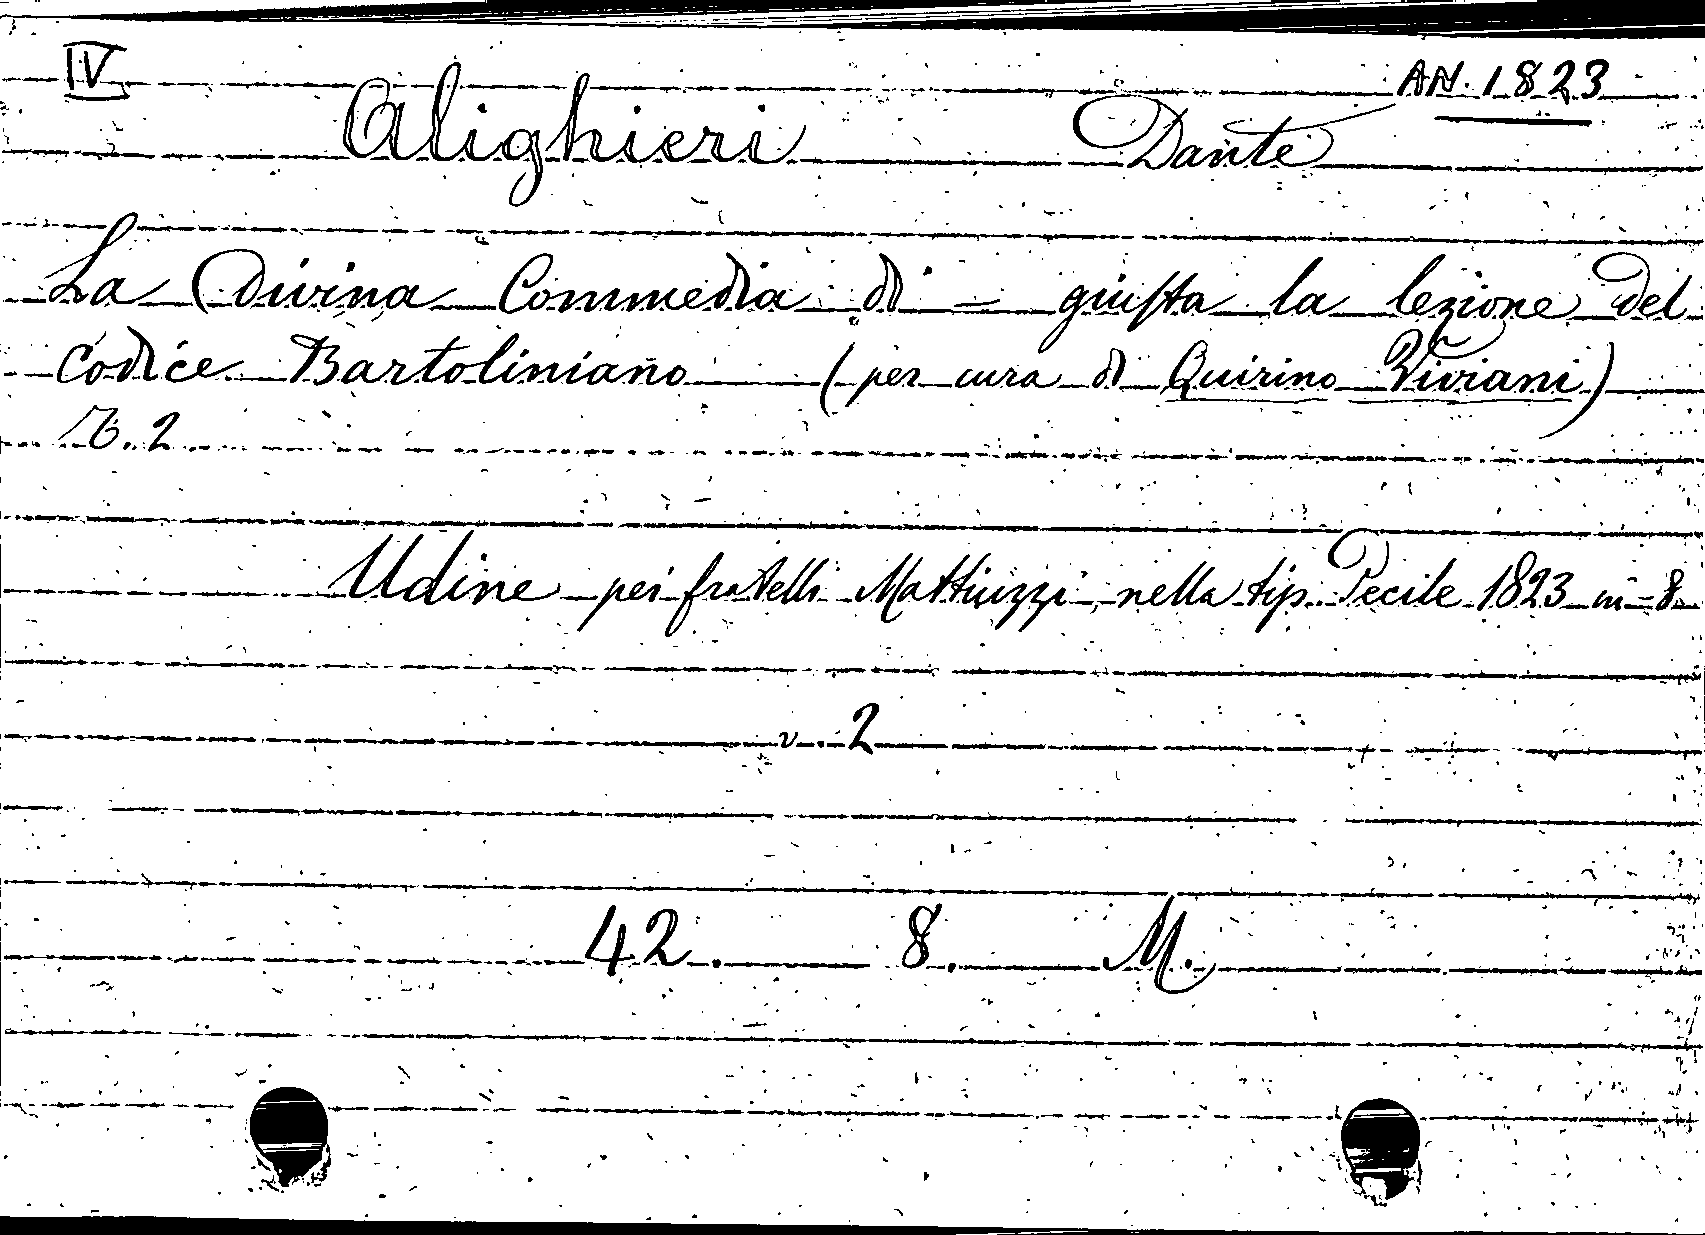 IV
AN. 1823
Alighieri Dante
La Divina Commedia di — giusta la lezione del
Codice Bartoliniano (per cura di Quirino Viviani)
T. 2
Udine pei fratelli Mattiuzzi, nella tip. Pecile 1823 in-8.
v. 2
42. 8. M.